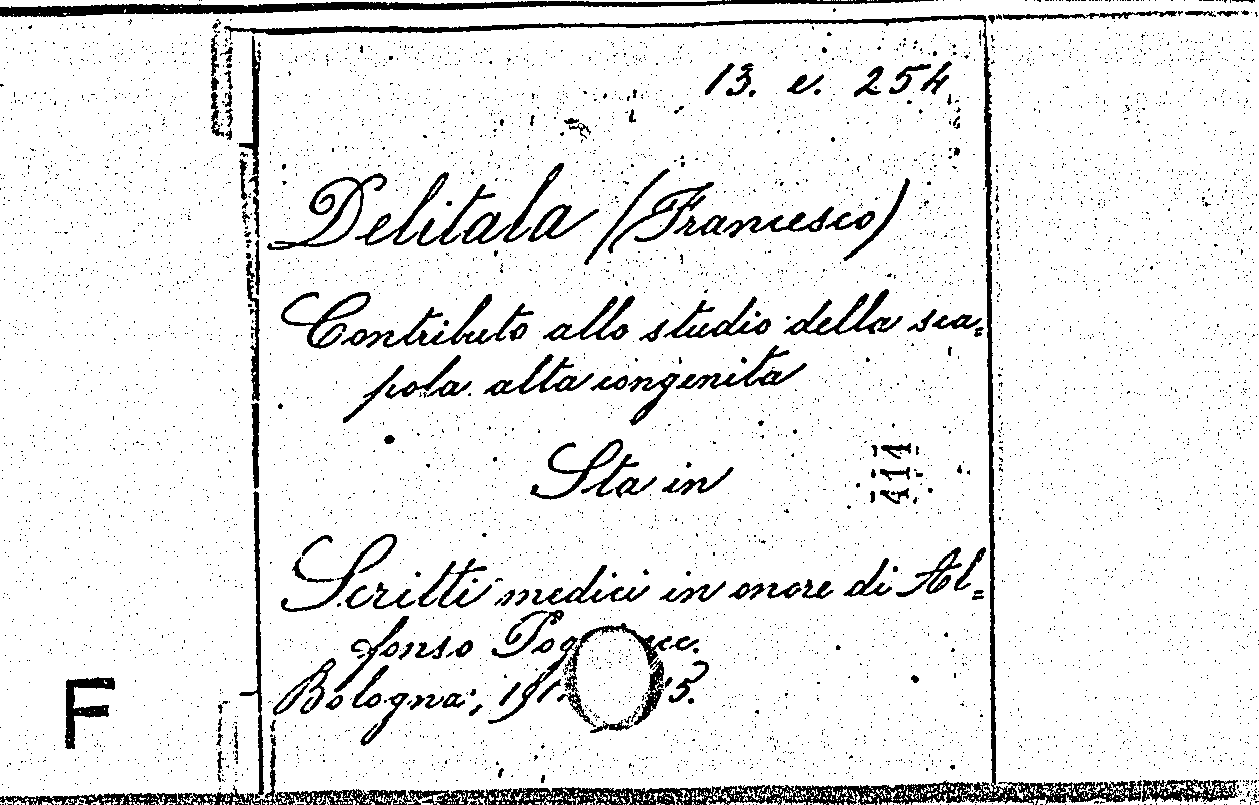 13. e. 254
Delitala (Francesco)
Contributo allo studio della sca=
pola alta congenita
Sta in
414
Scritti medici in onore di Al=
fonso
Bologna,
F